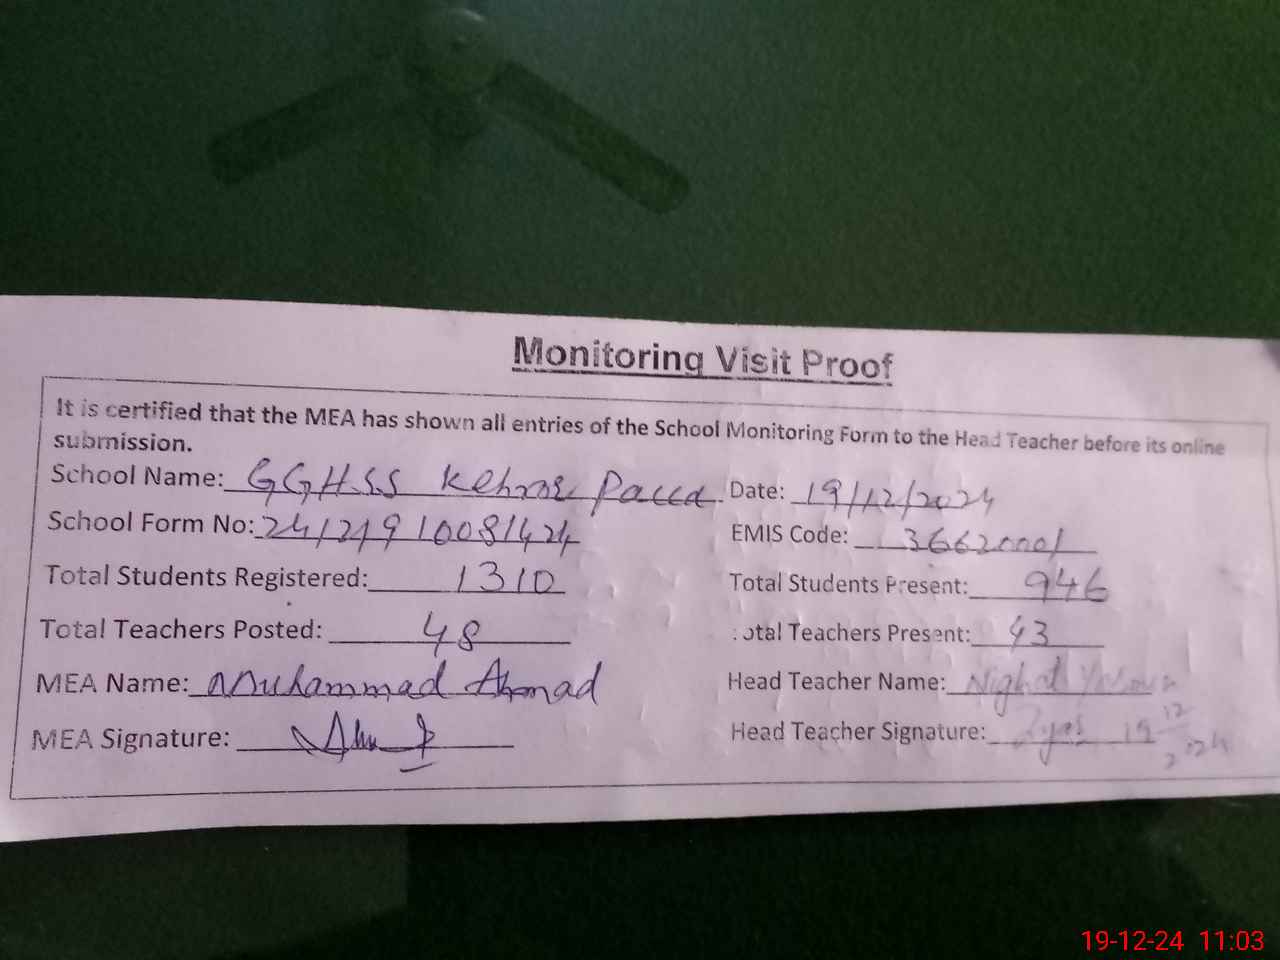 Monitoring Visit Proof
It is certified that the MEA has shown all entries of the School Monitoring Form to the Head Teacher before its online
submission.
School Name: GGHSS Kehror Pacca Date: 19/12/2024
School Form No: 24121910081424 EMIS Code: 36620001
Total Students Registered: 1310 Total Students Present: 946
Total Teachers Posted: 48 Total Teachers Present: 43
MEA Name: Muhammad Ahmad Head Teacher Name: Nighat
MEA Signature: Head Teacher Signature: 19 12 2024
19-12-24 11:03